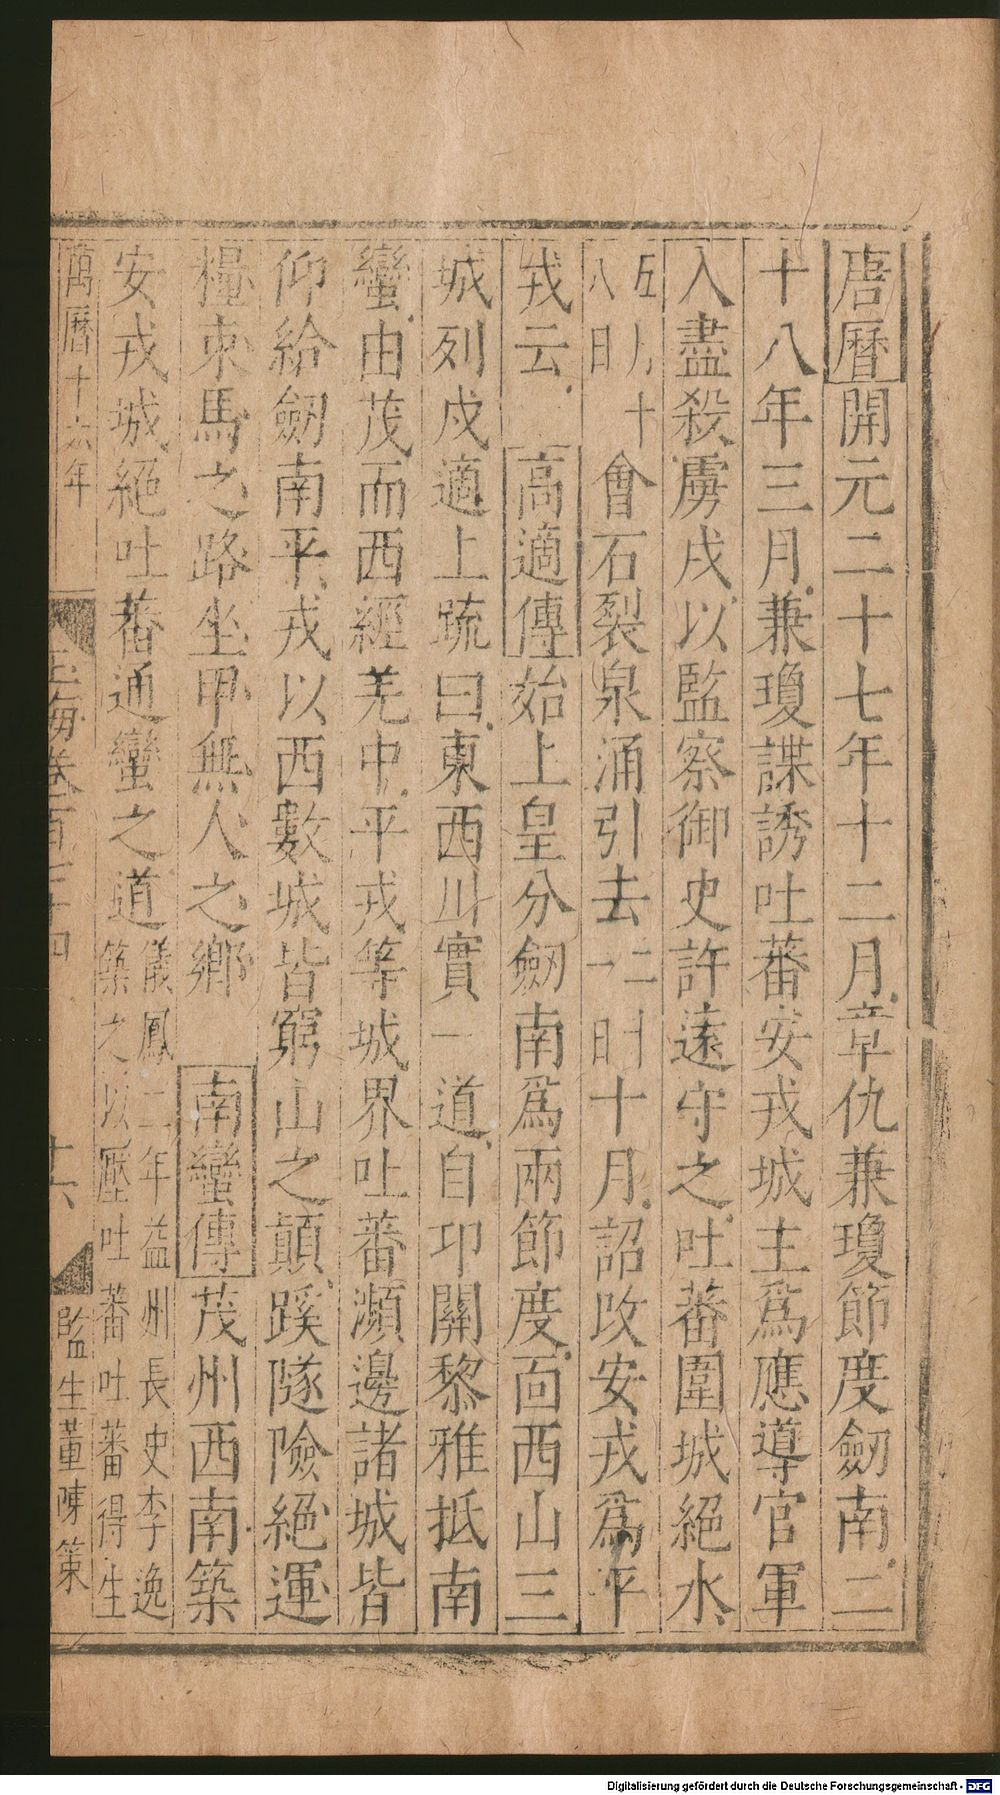 唐曆開元二十七年十二月章仇兼瓊節度劒南二
十八年三月兼瓊諜誘吐蕃安戎城主爲應導官軍
入盡殺虜戌以監察御史許遠守之吐蕃圍城絕水
五月十八日會石裂泉涌引去十月詔攺安戎爲平
戎云高適傳始上皇分劒南爲兩節度百西山三
城列戍適上䟽曰東西川實一道自卭關黎雅抵南
蠻由茂而西經羌中平戎等城界吐蕃瀕邊諸城皆
仰給劒南平戎以西數城皆窮山之顛蹊隧險絕運
糧束馬之路坐甲無人之鄉南蠻傳茂州西南築
安戎城絕吐蕃通蠻之道儀鳳二年益州長史李逸
築之以壓吐蕃吐蕃得生
萬曆十六年
玉海卷百三十四
十六
監生董陳策
Digitalisierung gefördert durch die Deutsche Forschungsgemeinschaft - DFG